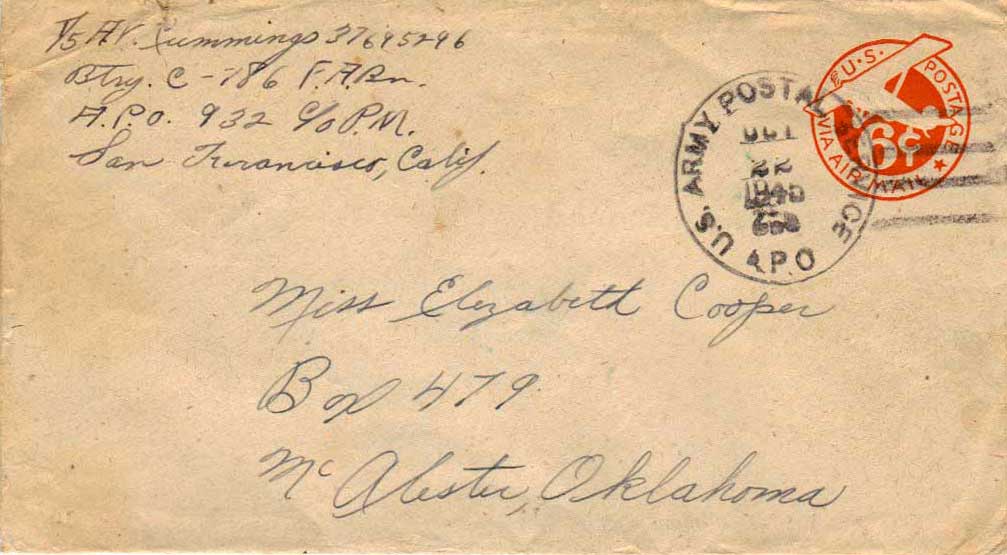 T/5 A.V. Cummings 37695296
Btry. C - 786 F.A.Bn.
A.P.O. 932 c/o P.M.
San Francisco, Calif.
U.S. POSTAGE
6¢
VIA AIR MAIL
U.S. ARMY POSTAL SERVICE
OCT
22
A.P.O
Miss Elizabeth Cooper
Box 479
McAlester, Oklahoma